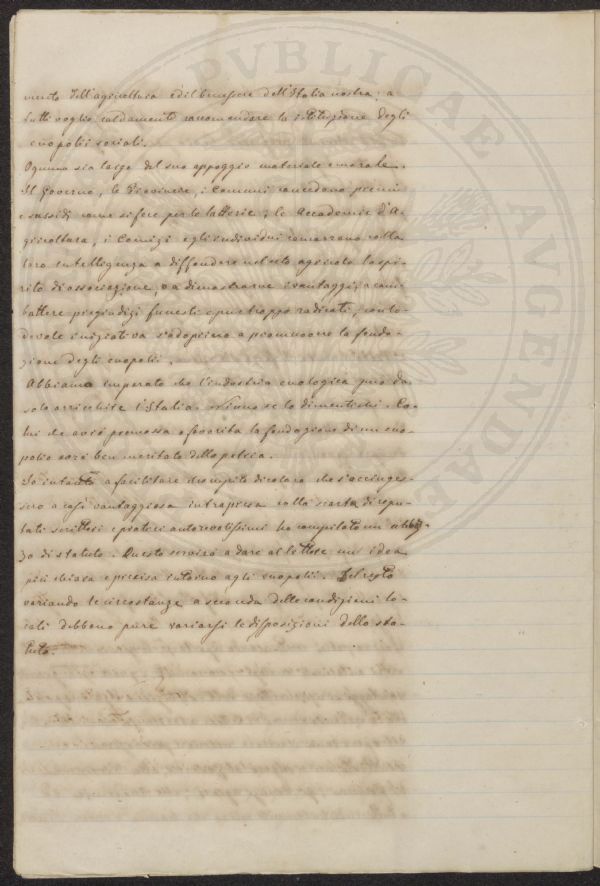 mento dell'agricoltura ed il benessere dell'Italia nostra; a
tutti voglio caldamente raccomandare la istituzione degli
enopolii sociali.
Ognuno sia largo del suo appoggio materiale e morale.
Il Governo, le Provincie, i Comuni concedono premi
e sussidi come si fece per le latterie; le Accademie d'A-
gricoltura, i Comizi e gli individui concorrano colla
loro intelligenza a diffondere nel ceto agricolo lo spi-
rito di associazione, o a dimostrarne i vantaggi; a com-
battere pregiudizi funesti e pur troppo radicati; con lo-
devole iniziativa s'adoprino a promuovere la fonda-
zione degli enopolii.
Abbiamo imparato che l'industria enologica può da
sola arricchire l'Italia. Niuno se lo dimentichi. Co-
lui che avrà promossa o favorita la fondazione di un eno-
polio sarà ben meritato della patria.
Io intanto a facilitare il compito di coloro che s'accinges-
sero a così vantaggiosa intrapresa colla scorta di repu-
tati scrittori e pratici autorevolissimi ho compilato un
zo di statuto. Questo servirà a dare al lettore un' idea
più chiara e precisa intorno agli enopolii. Del resto
variando le circostanze a seconda delle condizioni lo-
cali debbono pure variarsi le disposizioni dello sta-
tuto.
PVBLICAE AVGENDAE